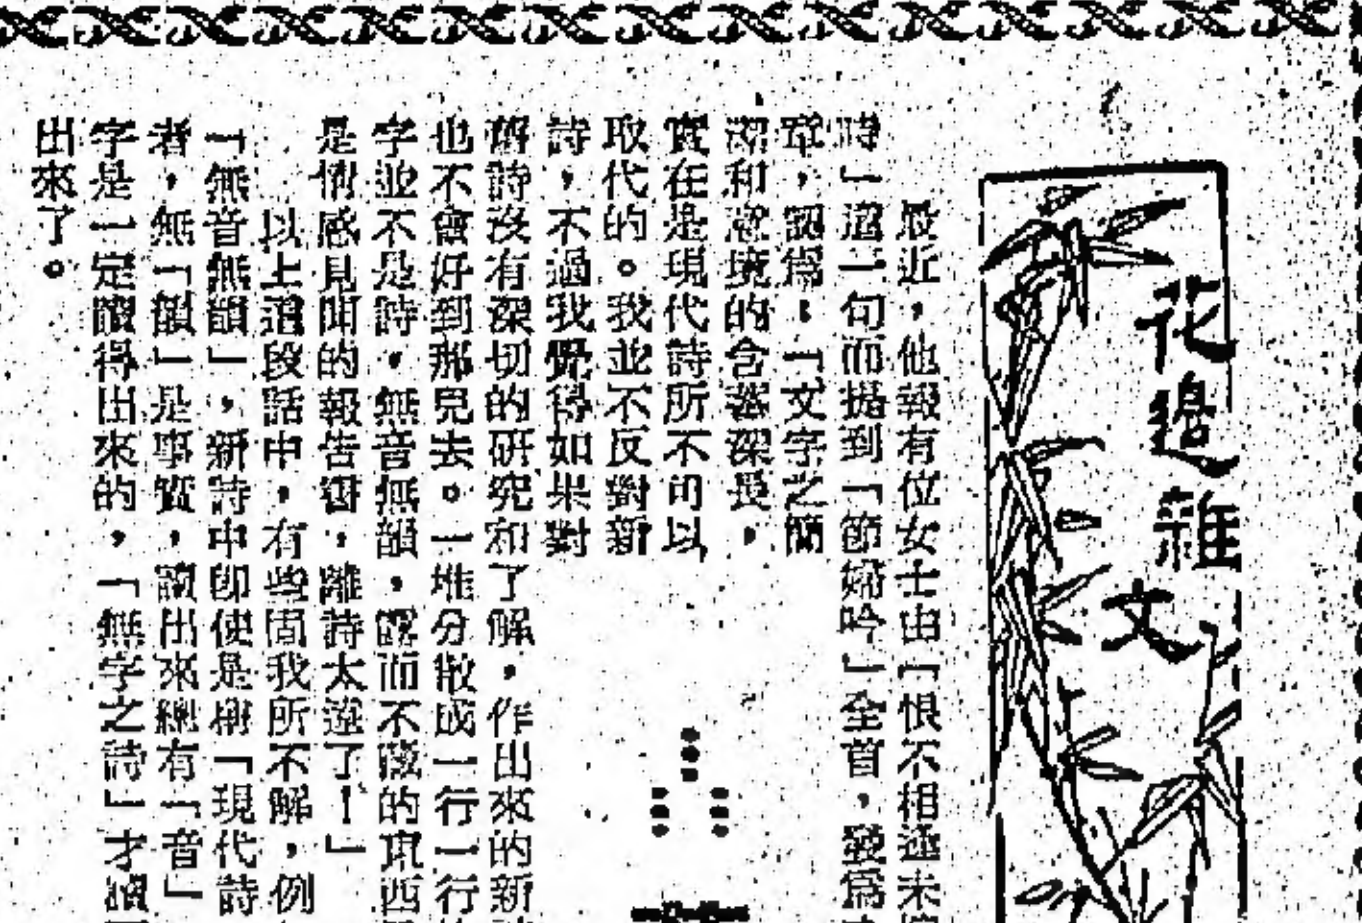 花邊雜文
最近，他報有位女士由「恨不相逢未
時」這一句而提到「節婦吟」全首，發爲
章，認爲：「文字之簡
潔和意境的含蓄深長，
實在是現代詩所不可以
取代的。我並不反對新
詩，不過我覺得如果對
舊詩沒有深切的研究和了解，作出來的新
也不會好到那兒去。一堆分散成一行一行
字並不是詩，無音無韻，露而不藏的東西
是情感見聞的報告書，離詩太遠了！」
以上這段話中，有些間我所不解，例
「無音無韻」，新詩中卽使是樹「現代詩
者，無「韻」是事實，讀出來總有「音」
字是一定讀得出來的，「無字之詩」才讀
出來了。